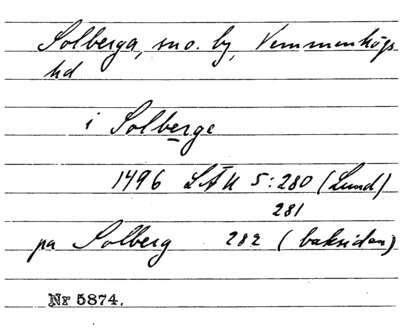 Solberga, sno. by, Vemmenhögs
hd
i Solberge
1496 LÄU 5:280 (Lund)
281
pa Solberg 282 (baksidan)
Nr 5874.